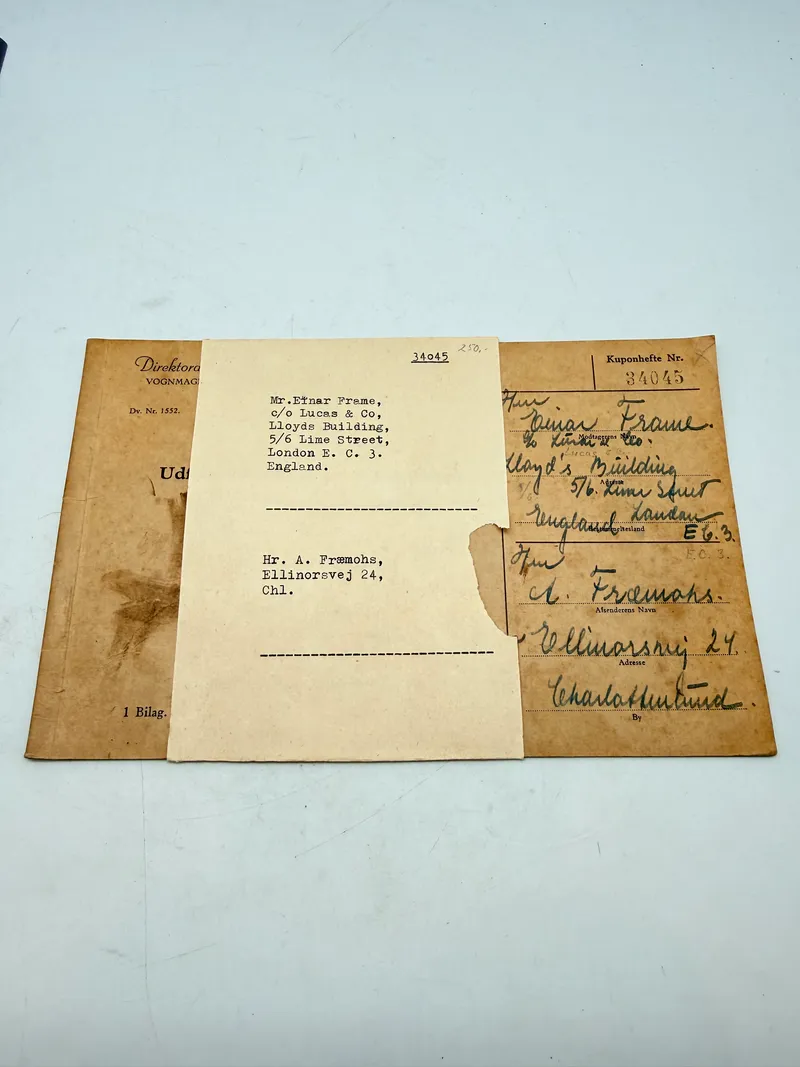 Direktora
VOGNMAG
Dv. Nr. 1552.
Udf
1 Bilag.
34045
250,-
Mr.Einar Frame,
c/o Lucas & Co,
Lloyds Building,
5/6 Lime Street,
London E. C. 3.
England.
Hr. A. Fræmohs,
Ellinorsvej 24,
Chl.
Kuponhefte Nr.
34045
Herr
Einar Frame.
Modtagerens Navn
c/o Lucas & Co.
Lucas &
Lloyd's Building
Adresse
5/6
5/6. Lime Street
England London
Bestemmelsesland
E C. 3.
E C. 3.
Herr
A. Fræmohs.
Afsenderens Navn
Ellinorsvej 24.
Adresse
Charlottenlund.
By